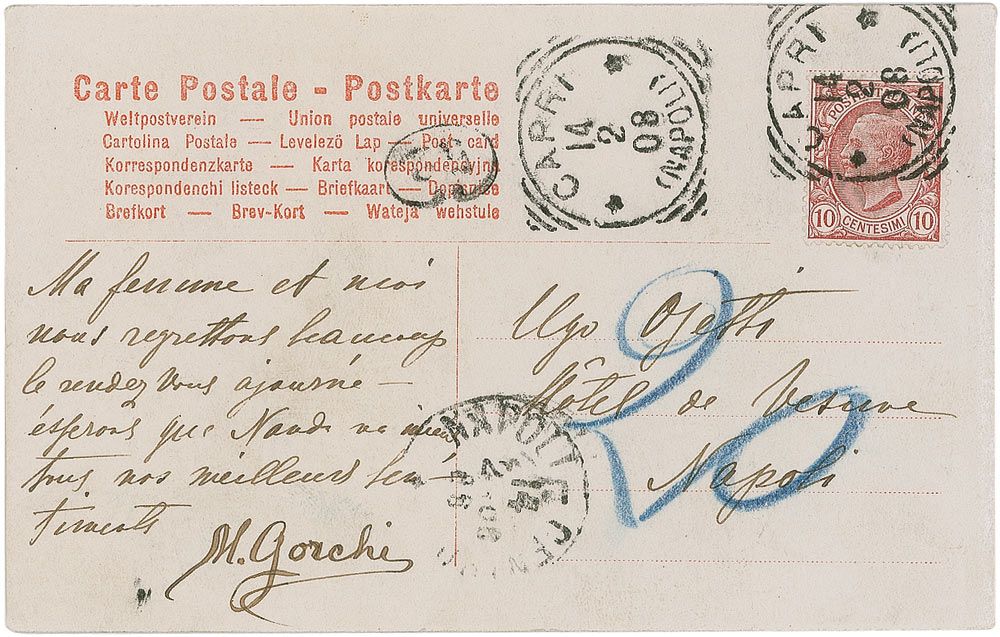 Carte Postale - Postkarte
Weltpostverein — Union postale universelle
Cartolina Postale — Levelezö Lap — Post card
Korrespondenzkarte — Karta korespondencyjna
Korespondenchi listeck — Briefkaart —
Brefkort — Brev-Kort — Wateja wehstule
CAPRI
(NAPOLI)
14
2
08
CAPRI
(NAPOLI)
14
2
08
POSTE ITALIANE
10 CENTESIMI 10
Ma femme et moi
nous regrettons beaucoup
le rendez vous ajourné —
espérons que Nandi va mieux
tous nos meilleurs sen-
timents
M. Gorchi
Ugo Ojetti
Hôtel de Vesuve
Napoli
20
NAPOLI